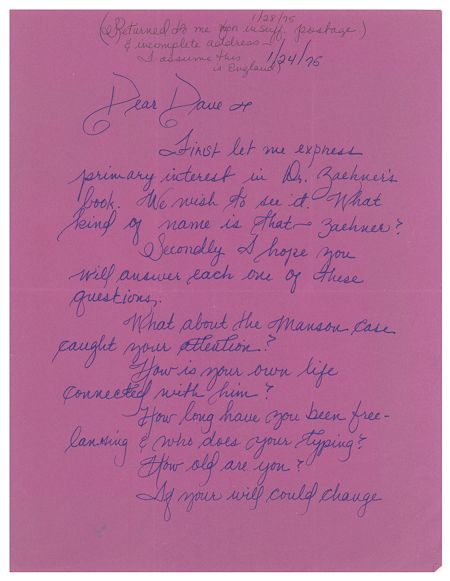 1/28/75
(Returned to me upon insuff. postage)
& incomplete address —
I assume this 1/24/75
is England)
Dear Dave &
First let me express
primary interest in Dr. Zaehner's
book. We wish to see it. What
kind of name is that — Zaehner?
Secondly I hope you
will answer each one of these
questions.
What about the Manson case
caught your attention?
How is your own life
connected with him?
How long have you been free-
lancing & who does your typing?
How old are you?
If your will could change